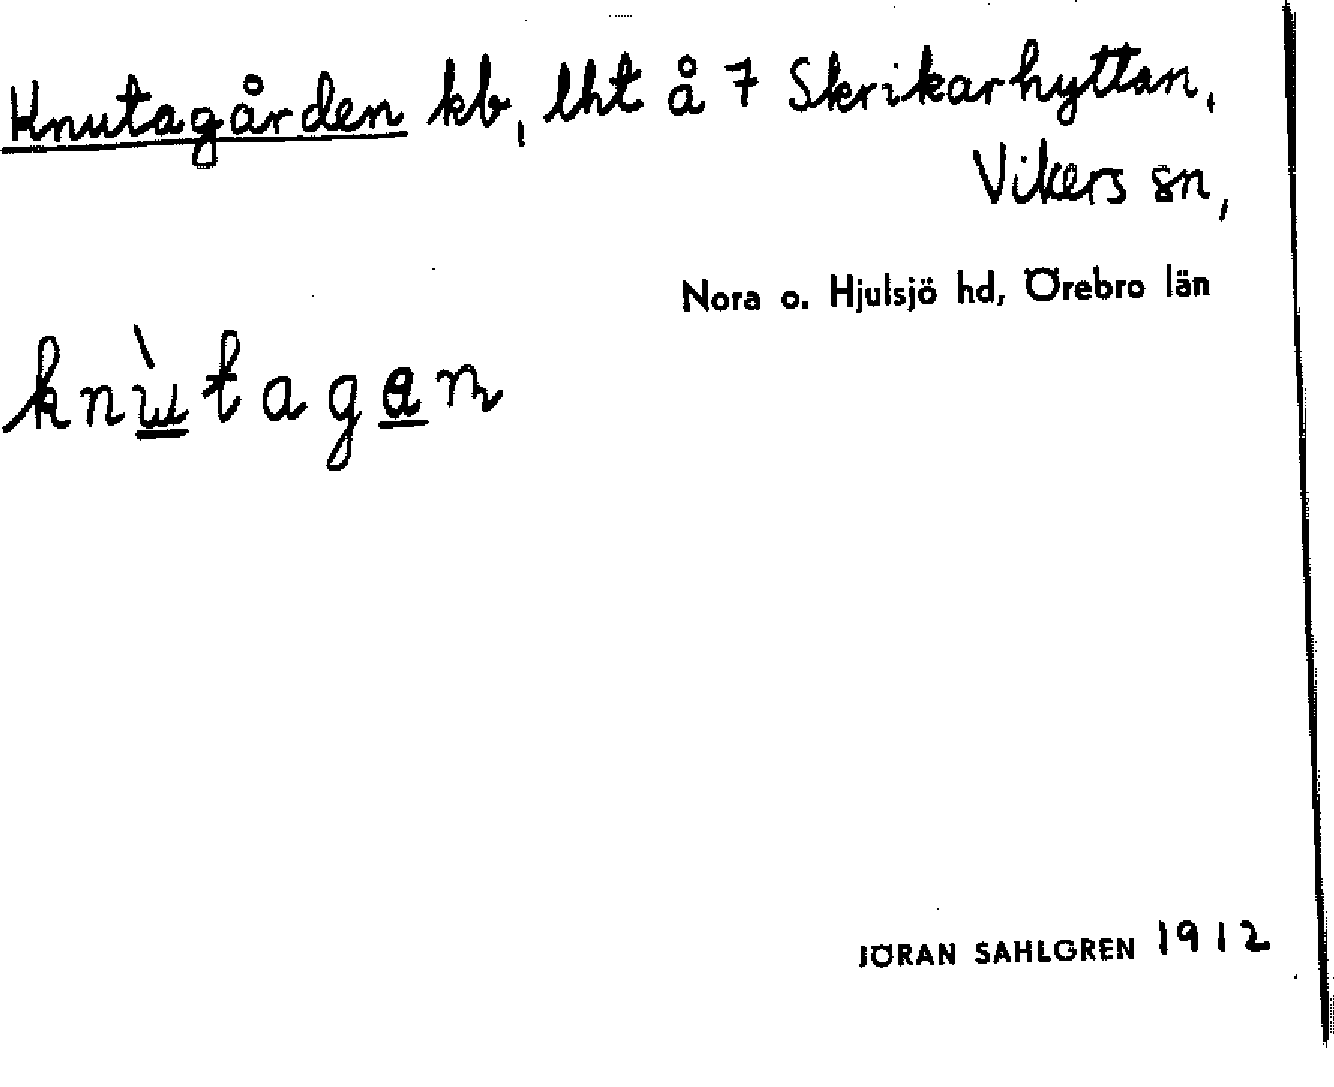 Knutagården kb, lht å 7 Skrikarhyttan,
Vikers sn,
Nora o. Hjulsjö hd, Örebro län
knùtagan
JÖRAN SAHLGREN 1912